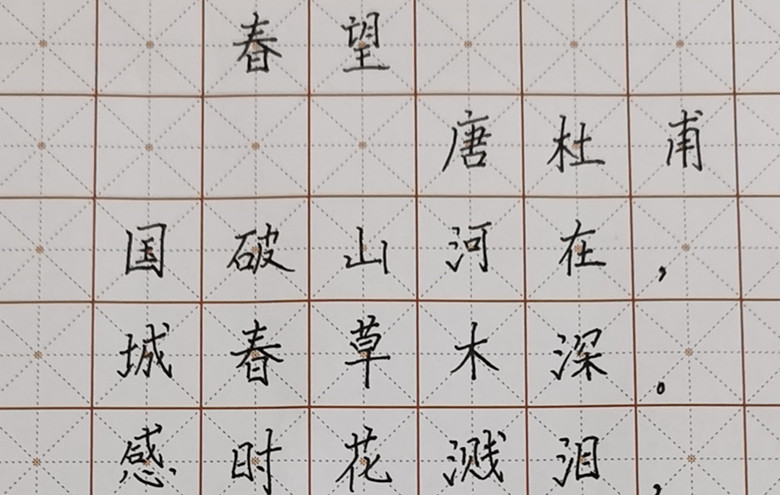 春望
唐杜甫
国破山河在，
城春草木深。
感时花溅泪，